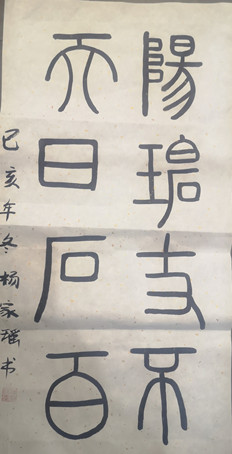 陽碧支不
天日石百
己亥年冬杨家瑶书